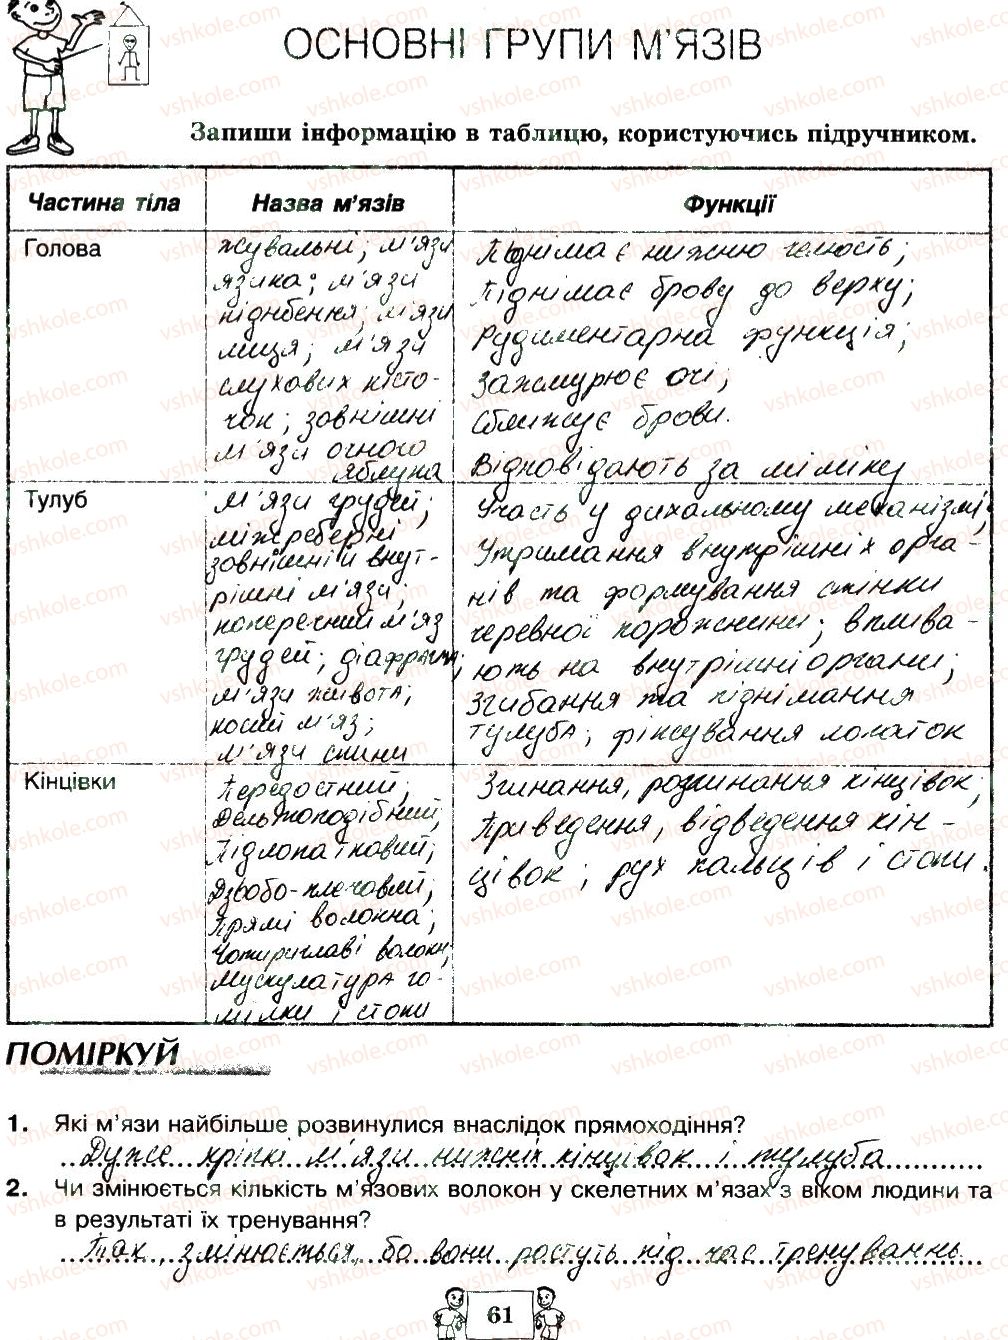 ОСНОВНІ ГРУПИ М'ЯЗІВ
Запиши інформацію в таблицю, користуючись підручником.
Частина тіла
Назва м'язів
Функції
Голова
жувальні; м'язи
язика; м'язи
піднебення; м'язи
лиця; м'язи
слухових кісто-
чок; зовнішні
м'язи очного
яблука
Піднімає нижню челюсть;
Піднімає брову до верху;
Рудиментарна функція;
Зажмурює очі;
Сближує брови.
Відповідають за міміку
Тулуб
м'язи грудей;
міжреберні
зовнішній внут-
рішні м'язи;
поперечний м'яз
грудей; діафрагма;
м'язи живота;
косий м'яз;
м'язи спини
Участь у дихальному механізмі;
Утримання внутрішніх орга-
нів та формування стінки
черевної порожнини; вплива-
ють на внутрішні органи;
Згибання та піднімання
тулуба; фіксування лопаток
Кінцівки
Передостний;
Дельтоподібний;
Підлопатковий;
Дзьобо-плечовий;
Прямі волокна;
Чотириглаві волокн;
Мускулатура го-
мілки і стопи
Згинання, розгинання кінцівок;
Приведення, відведення кін-
цівок; рух пальців і стопи.
ПОМІРКУЙ
1. Які м'язи найбільше розвинулися внаслідок прямоходіння?
Дуже кріпкі м'язи нижніх кінцівок і тулуба
2. Чи змінюється кількість м'язових волокон у скелетних м'язах з віком людини та
в результаті їх тренування?
Так, змінюється, бо вони ростуть під час тренуваннь.
61